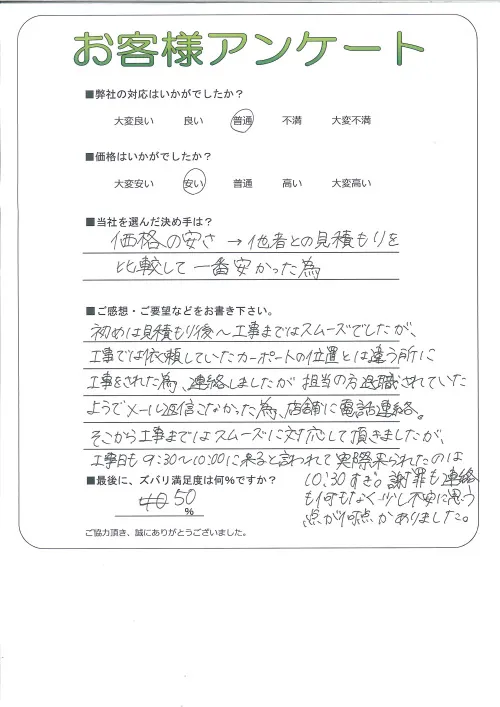 お客様アンケート
■弊社の対応はいかがでしたか？
大変良い 良い 普通 不満 大変不満
■価格はいかがでしたか？
大変安い 安い 普通 高い 大変高い
■当社を選んだ決め手は？
価格の安さ → 他者との見積もりを
比較して一番安かった為
■ご感想・ご要望などをお書き下さい。
初めは見積もり後〜工事まではスムーズでしたが、
工事では依頼していたカーポートの位置とは違う所に
工事をされた為、連絡しましたが 担当の方退職されていた
ようでメール返信こなかった為、店舗に電話連絡。
そこから工事まではスムーズに対応して頂きましたが、
工事日も 9:30〜10:00に来ると言われて実際来られたのは
10:30すぎ。謝罪も連絡
も何もなく少し不安に思う
点が何点かありました。
■最後に、ズバリ満足度は何%ですか？
50
%
ご協力頂き、誠にありがとうございました。